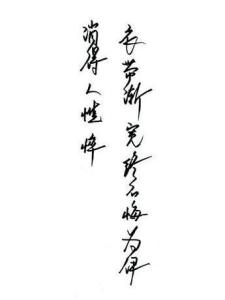 衣带渐宽终不悔为伊
消得人憔悴